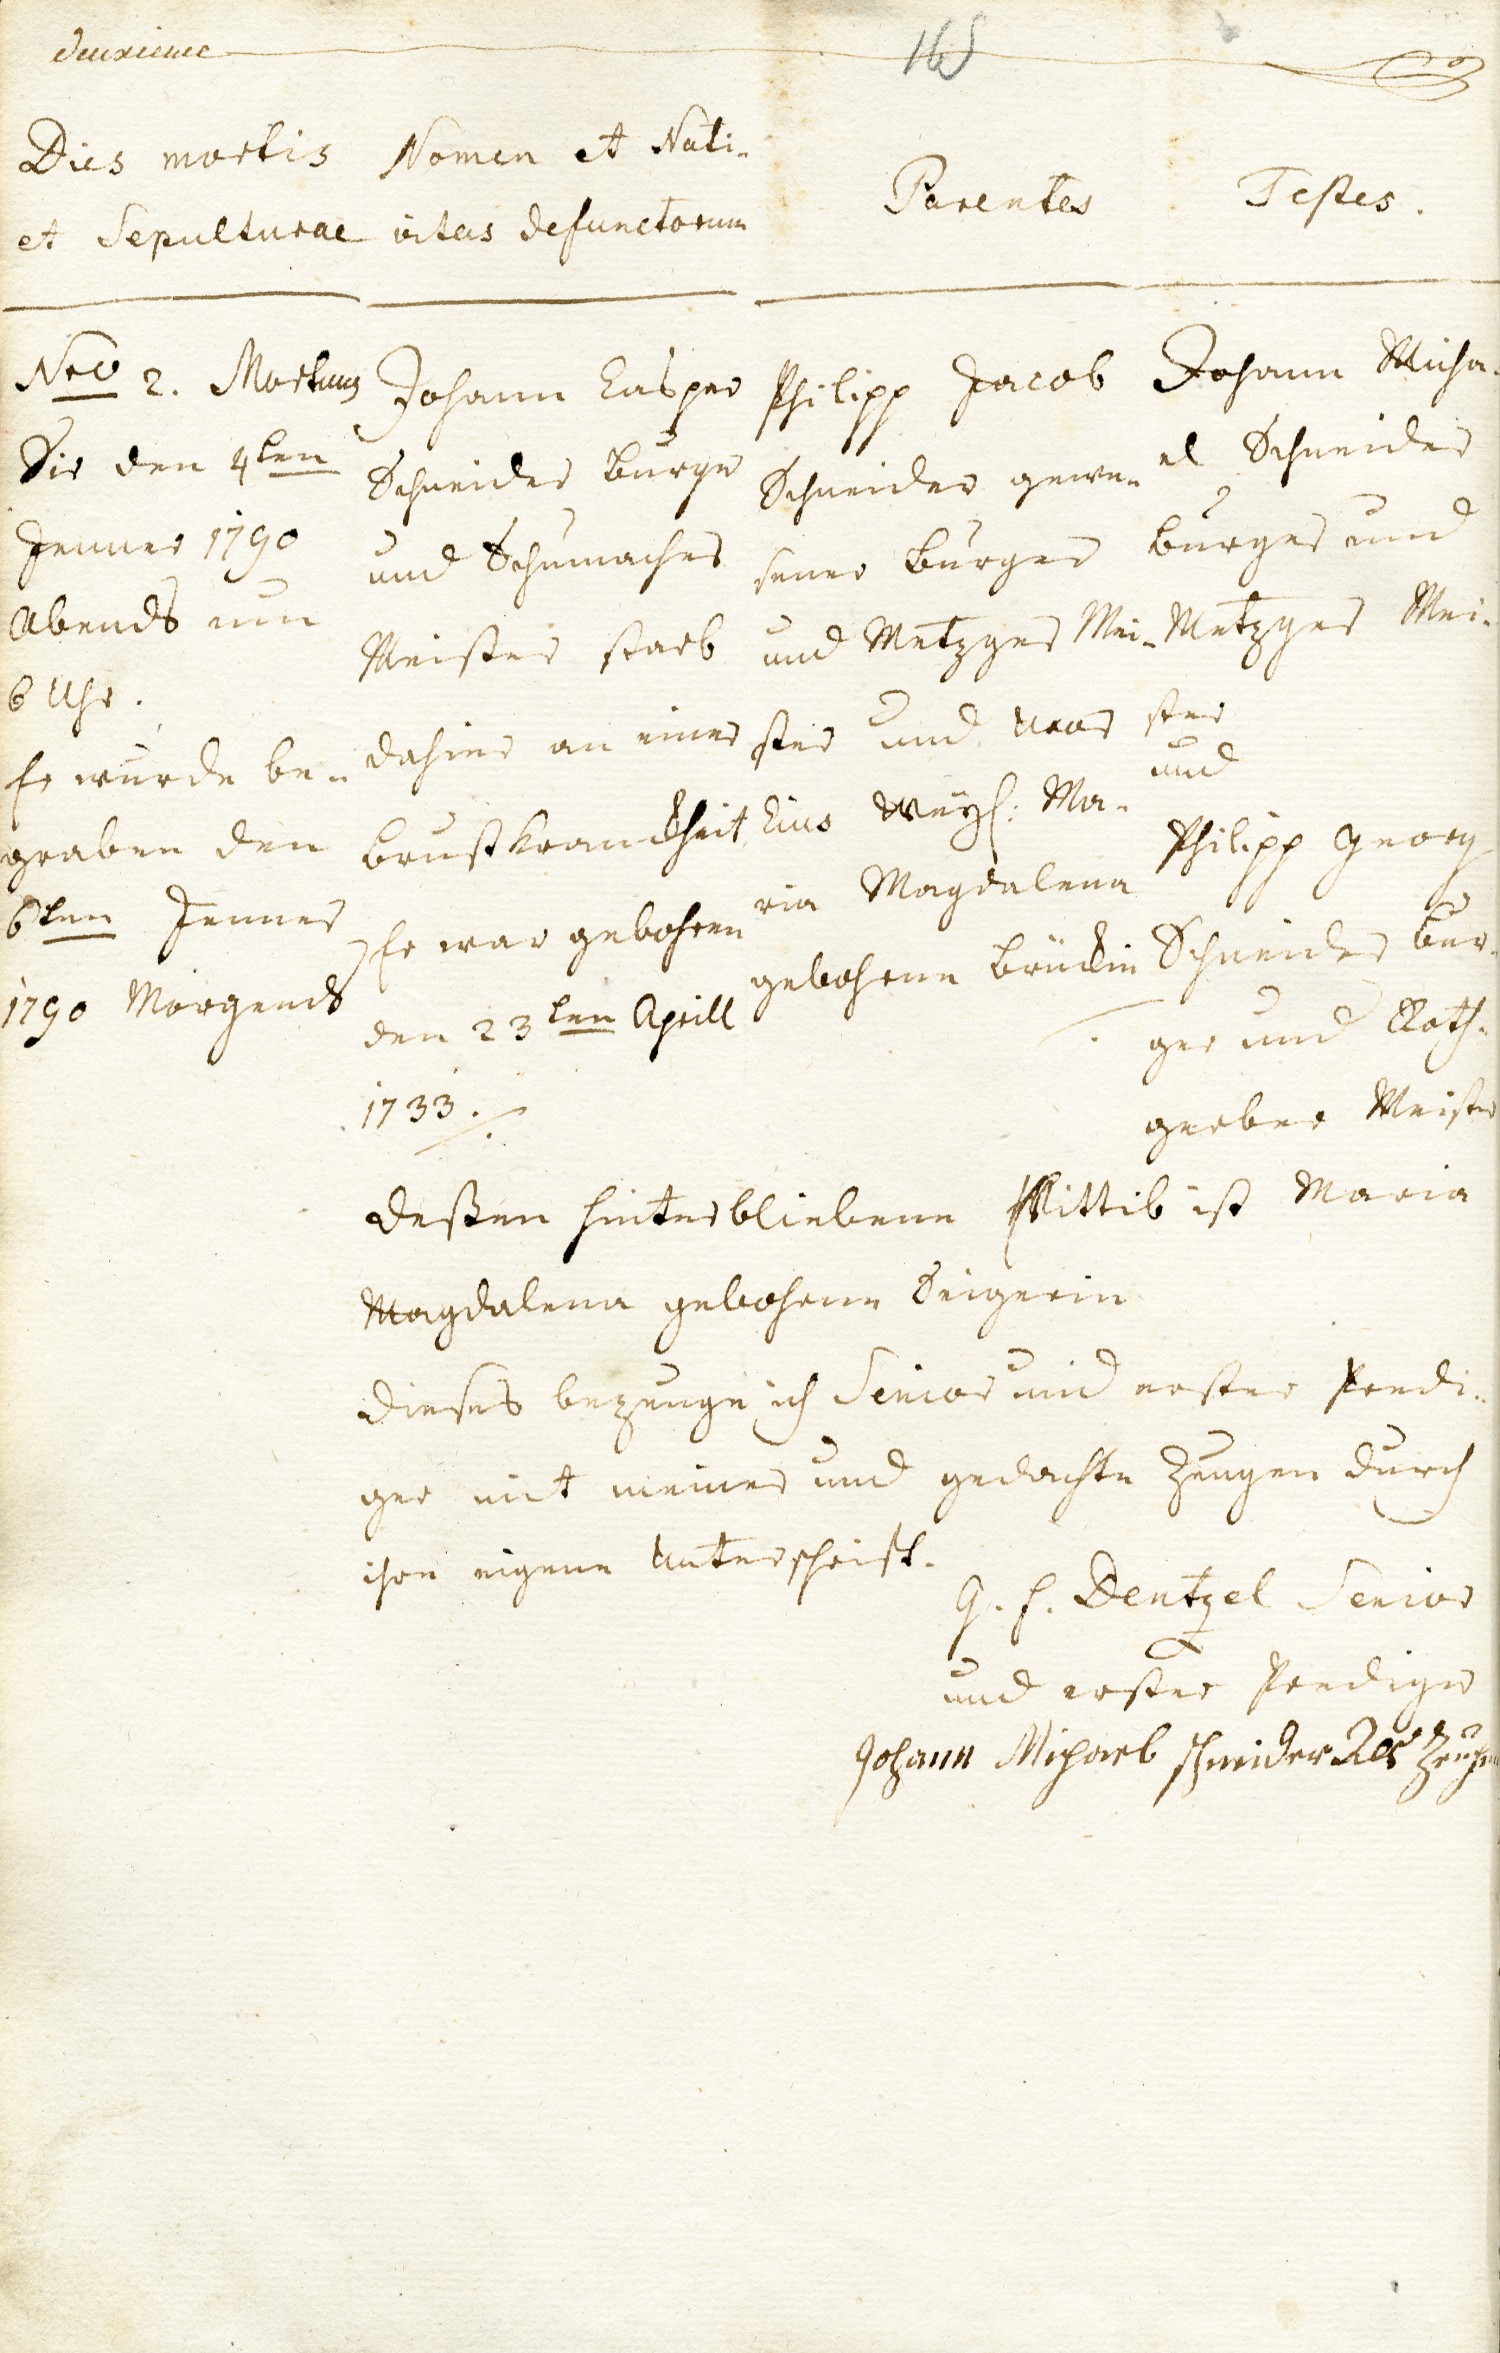 deuxieme
165
Dies mortis
et Sepulturae
Nomen et Nati-
vitas defunctorum
Parentes
Testes.
Nro 2. Mortuus
Die den 4ten
Jenner 1790
Abends um
6 Uhr.
Er wurde be-
graben den
6ten Jenner
1790 Morgends
Johann Casper
Schneider Burger
und Schumacher
Meister starb
dahier an einer
Brustkranckheit,
Er war gebohren
den 23ten Aprill
1733.
Philipp Jacob
Schneider gewe-
sener Burger
und Metzger Mei-
ster und Uxor
Eius Weyl: Ma-
ria Magdalena
gebohrne Brückin
Johann Micha-
el Schneider
Burger und
Metzger Mei-
ster
und
Philipp Georg
Schneider Bur-
ger und Roth-
gerber Meister
deßen hinterbliebene Wittib ist Maria
Magdalena gebohrne Seigerin
dieses bezeuge ich Senior und erster Predi-
ger mit meiner und gedachte Zeugen durch
ihre eigene Unterschrift.
G. F. Dentzel Senior
und erster Prediger
Johann Michael schneider Als Zeuge